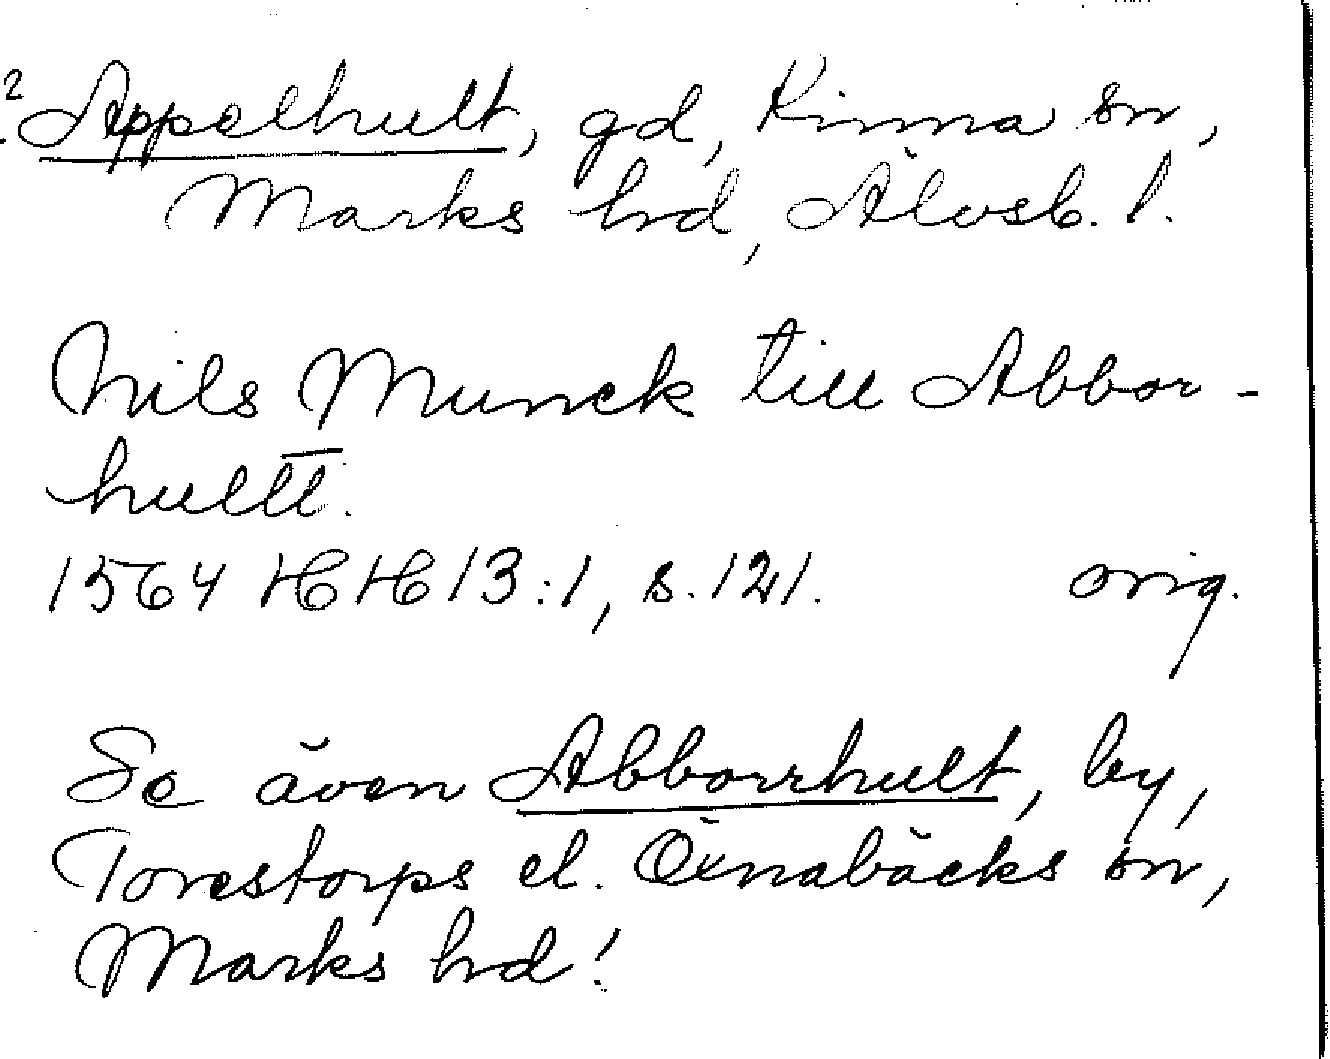 ? Appelhult, gd, Kinna sn,
Marks hd, Älvsb. l.
Nils Munck till Abbor-
hultt.
1564 HH 13:1, s. 121. orig.
Se även Abborrhult, by,
Torestorps el. Öxnabäcks sn,
Marks hd!